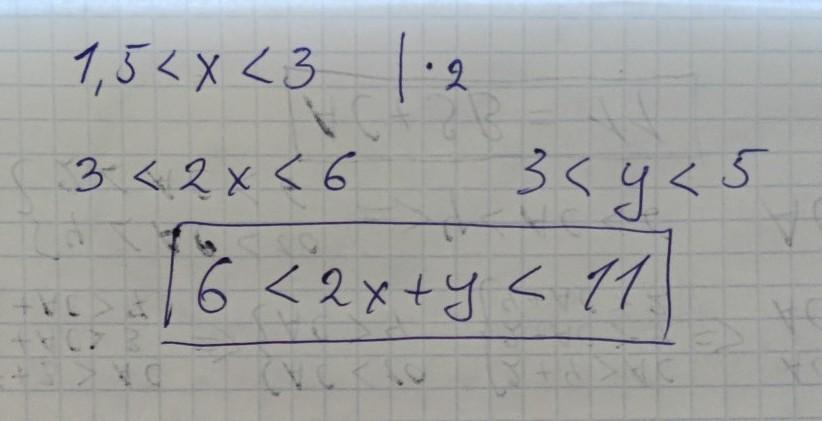 1,5 < x < 3 | · 2
3 < 2x < 6 3 < y < 5
6 < 2x + y < 11